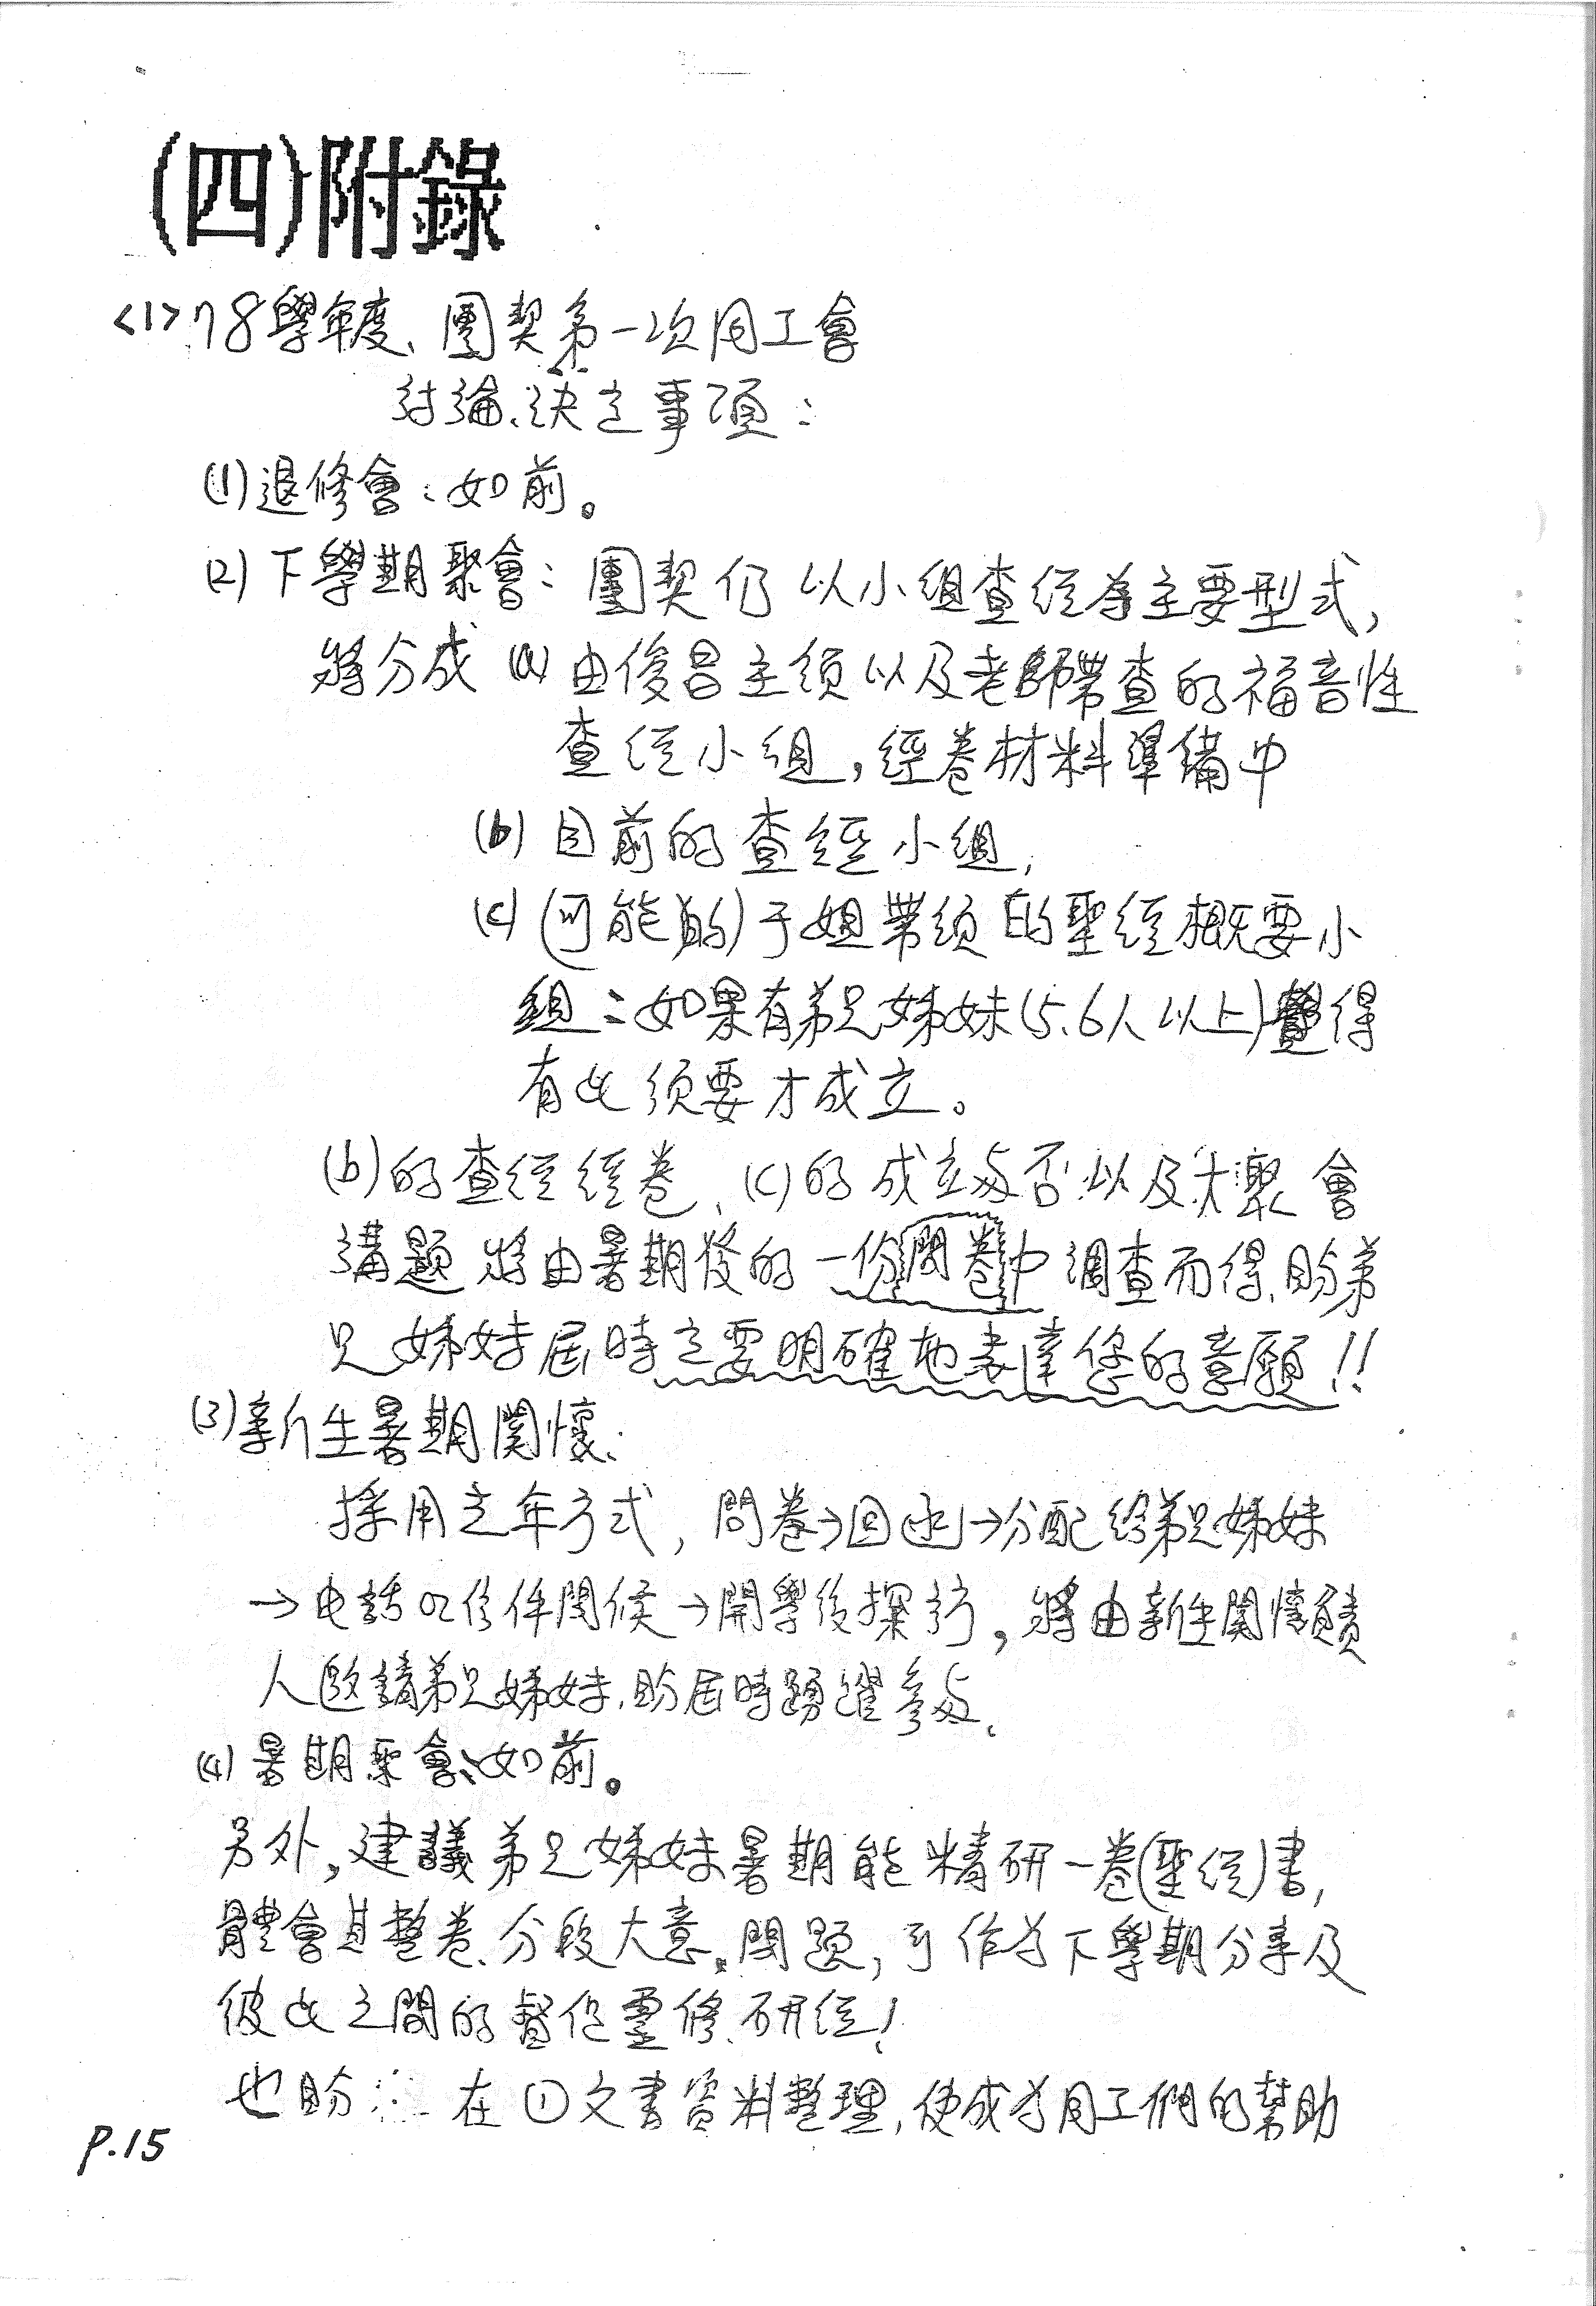 (四)附錄
<1>78學年度、團契第一次同工會
討論、決定事項：
(1)退修會：如前。
(2)下學期聚會：團契仍以小組查經為主要型式，
將分成 (a) 由俊昌主領以及老師帶查的福音性
查經小組，經卷材料準備中
(b) 目前的查經小組，
(c) (可能的)于姐帶領的聖經概要小
組：如果有弟兄姊妹(5.6人以上)覺得
有此須要才成立。
(b)的查經經卷、(c)的成立與否以及大聚會
講題將由暑期後的一份問卷中調查而得，盼弟
兄姊妹屆時定要明確地表達您的意願!!
(3)新生暑期關懷：
採用去年方式，問卷→回函→分配給弟兄姊妹
→电話or信件問候→開學後探訪，將由新生關懷負責
人邀請弟兄姊妹，盼屆時踴躍參與、
(4)暑期聚會：如前。
另外，建議弟兄姊妹暑期能精研一卷(聖經)書，
體會其整卷、分段大意。問題，可作为下學期分享及
彼此之間的督促靈修、研經！
也盼：在①文書資料整理，使成为同工們的幫助
P.15